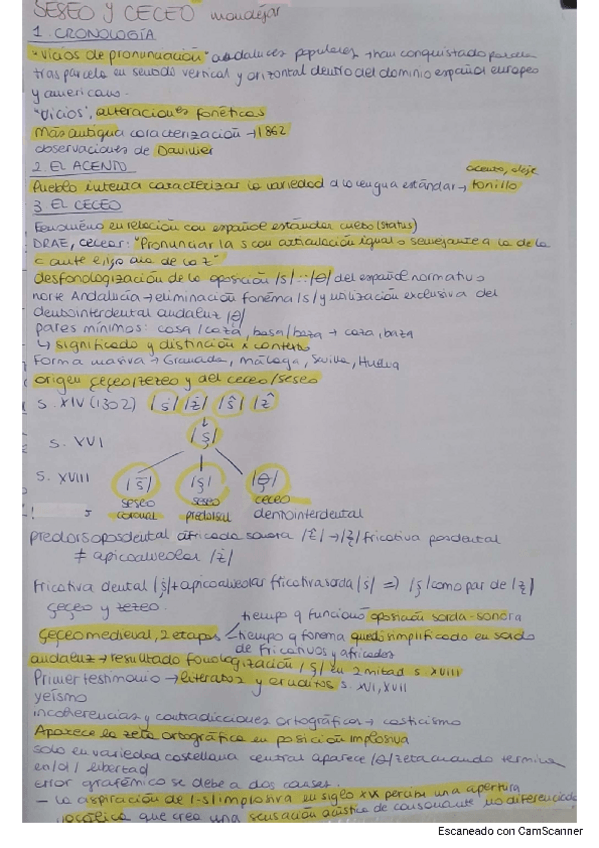 SESEO Y CECEO mondéjar
1. CRONOLOGÍA
"Vicios de pronunciación" andaluces populares → han conquistado parcela
tras parcela en sentido vertical y orizontal dentro del dominio español europeo
y americano.
"Vicios", alteraciones fonéticas
Más antigua caracterización → 1862
observaciones de Davillier
2. EL ACENTO
acento, deje
Pueblo intenta caracterizar la variedad a la lengua estándar → tonillo
3. EL CECEO
Fenómeno en relación con español estándar culto (status)
DRAE, cecear: "Pronunciar la s con articulación igual o semejante a la de la
c ante e, i, o a la de la z"
desfonologización de la oposición /s/ :: /θ/ del español normativo
norte Andalucía → eliminación fonema /s/ y utilización exclusiva del
dentointerdental andaluz /θ/
pares mínimos: casa / caza, basa / baza → caza, baza
↳ significado y distinción x contexto
Forma masiva → Granada, Málaga, Sevilla, Huelva
origen çeçeo/zezeo y del ceceo/seseo
S. XIV (1302) /ṡ/ /ż/ /ŝ/ /ẑ/
S. XVI /ş/
S. XVIII /s̄/ /ş/ /θ/
seseo seseo ceceo
coronal predorsal dentointerdental
predorsodental africada sonora /ẑ/ → /z̧/ fricativa posdental
≠ apicoalveolar /ż/
Fricativa dental /ş/ + apicoalveolar fricativa sorda /ṡ/ => /ş/ como par de /z̧/
çeçeo y zezeo.
tiempo q funcionó oposición sorda-sonora
çeçeo medieval, 2 etapas < tiempo q fonema quedó simplificado en sordo
de fricativos y africados
andaluz → resultado fonologización /ş/ en 2 mitad s. XVIII
Primer testimonio → literatos y eruditos s. XVI, XVII
yeísmo
incoherencias y contradicciones ortográficas → casticismo
Aparece la zeta ortográfica en posición implosiva
solo en variedad castellana central aparece /θ/ zeta cuando termina
en /d/ libertad
error grafémico se debe a dos causas.
- la aspiración de /-s/ implosiva en siglo XVI percibe una apertura
vocálica que crea una sensación acústica de consonante no diferenciada
Escaneado con CamScanner